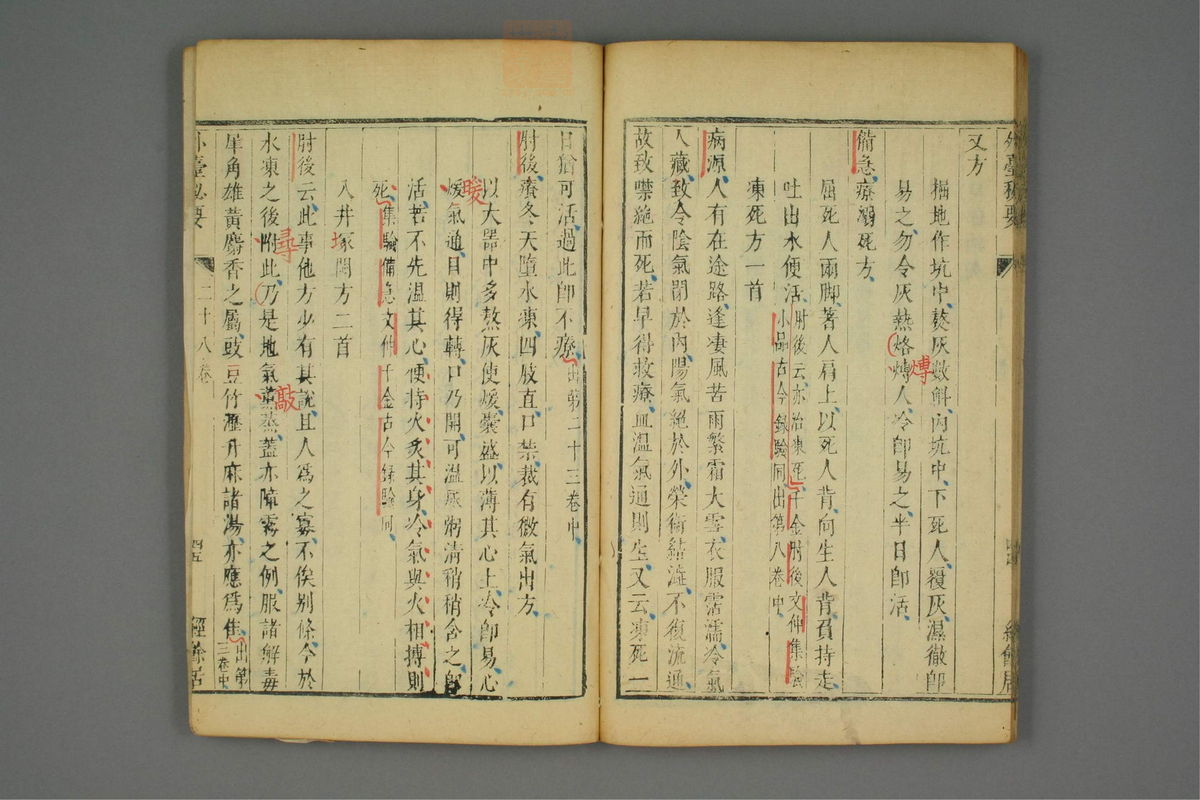 外臺秘要
又方
掘地作坑中熬灰數斛內坑中下死人覆灰濕徹即
易之勿令灰熱烙煿人冷即易之半日即活
煿
備急療溺死方
屈死人兩脚著人肩上以死人背向生人背負持走
吐出水便活肘後云亦治凍死千金肘後文仲集驗
小品古今錄驗同出第八卷中
凍死方一首
病源人有在途路逢凄風苦雨繁霜大雪衣服霑濡冷氣
入藏致令陰氣閉於內陽氣絕於外榮衛結澁不復流通
故致噤絕而死若早得救療血溫氣通則生又云凍死一
日猶可活過此即不療出第二十三卷中
肘後療冬天墮水凍四肢直口禁裁有微氣出方
以大器中多熬灰使煖囊盛以薄其心上冷即易心
暖
煖氣通目則得轉口乃開可溫尿粥清稍稍含之即
活若不先溫其心便持火炙其身冷氣與火相搏則
死集驗備急文仲千金古今錄驗同
入井塚悶方二首
肘後云此事他方少有其說且人為之寡不俟別條今於
尋
水凍之後附此乃是地氣熏蒸蓋亦障霧之例服諸解毒
犀角雄黃麝香之屬豉豆竹瀝升麻諸湯亦應為佳出第
三卷中
外臺秘要
二十八卷
四五
經餘居